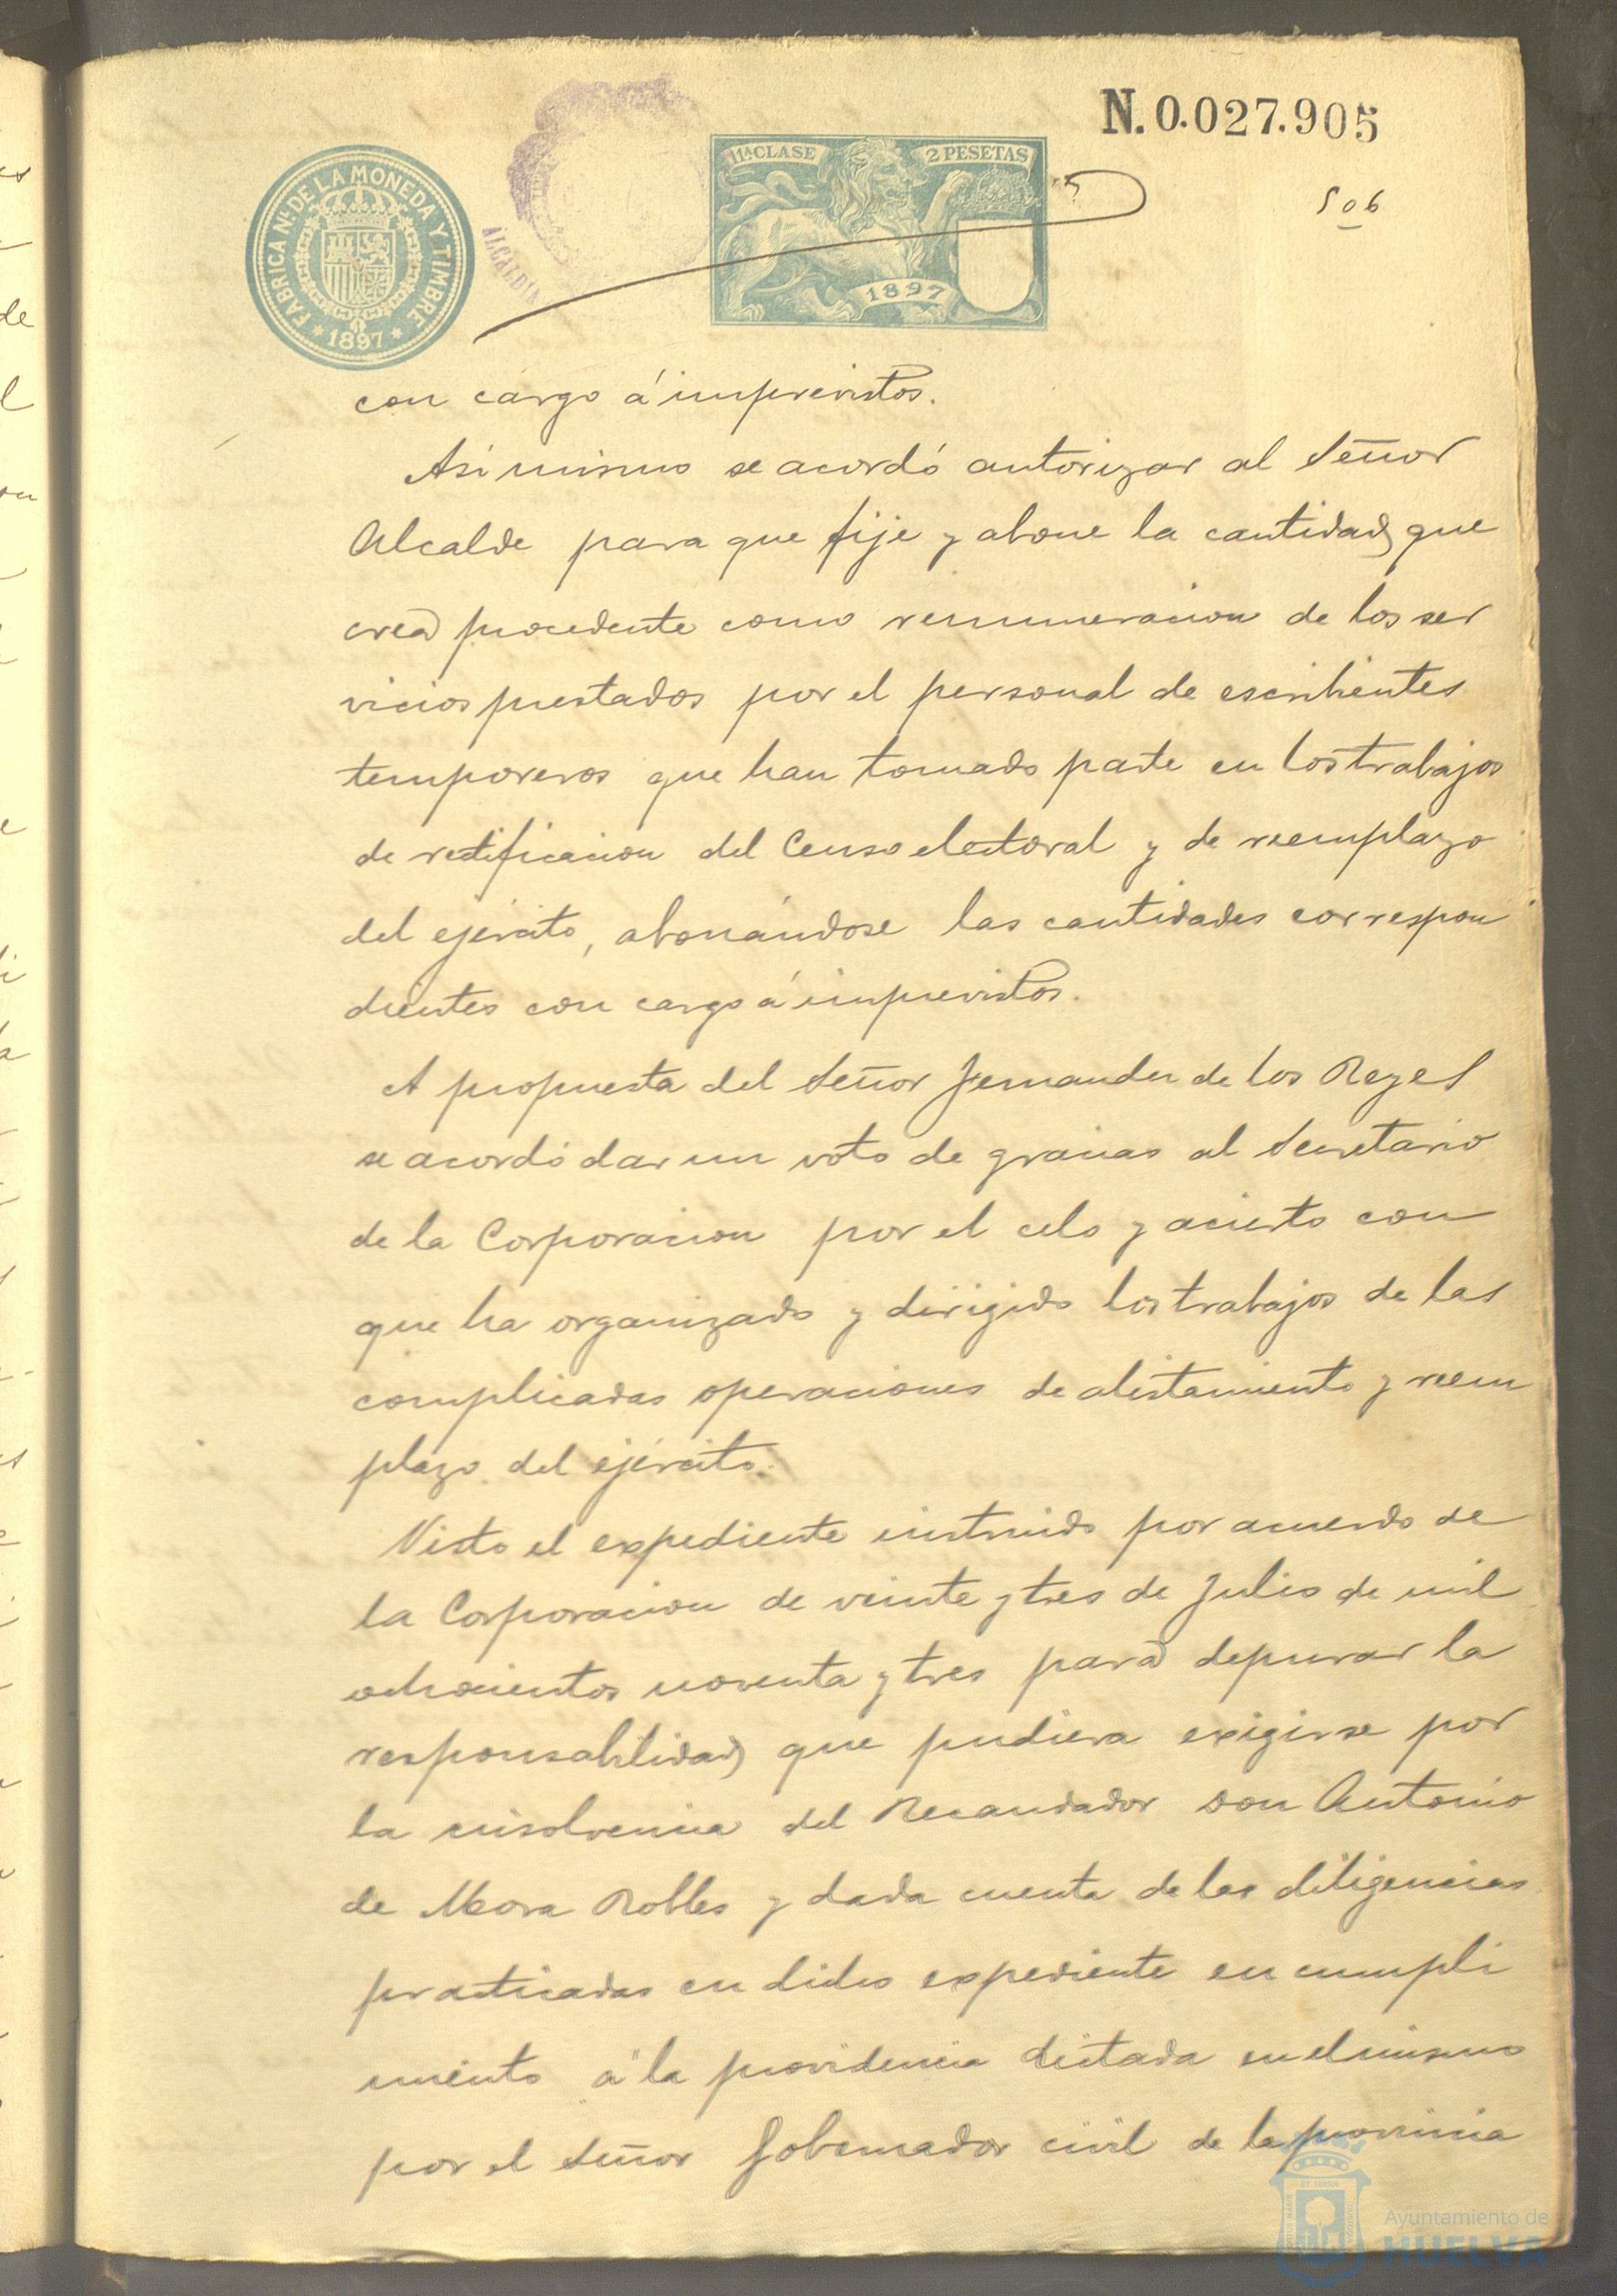 N. 0.027.905
506
FABRICA Nª DE LA MONEDA Y TIMBRE
* 1897 *
ALCALDIA
11ª CLASE
2 PESETAS
1897
con cargo á imprevistos.
Asi mismo se acordó autorizar al Señor
Alcalde para que fije y abone la cantidad que
crea procedente como remuneracion de los ser
vicios prestados por el personal de escribientes
temporeros que han tomado parte en los trabajos
de retificacion del Censo electoral y de reemplazo
del ejército, abonándose las cantidades correspon
dientes con cargo á imprevistos.
A propuesta del Señor Fernandez de los Reyes
se acordó dar un voto de gracias al Secretario
de la Corporacion por el celo y acierto con
que ha organizado y dirigido los trabajos de las
complicadas operaciones de alistamiento y reem
plazo del ejército.
Visto el expediente instruido por acuerdo de
la Corporacion de veinte y tres de Julio de mil
ochocientos noventa y tres para depurar la
responsabilidad que pudiera exigirse por
la insolvencia del Recaudador don Antonio
de Mora Robles y dada cuenta de las diligencias
practicadas en dicho expediente en cumpli
miento á la providencia dictada en el mismo
por el Señor Gobernador civil de la provincia
Ayuntamiento de
HUELVA